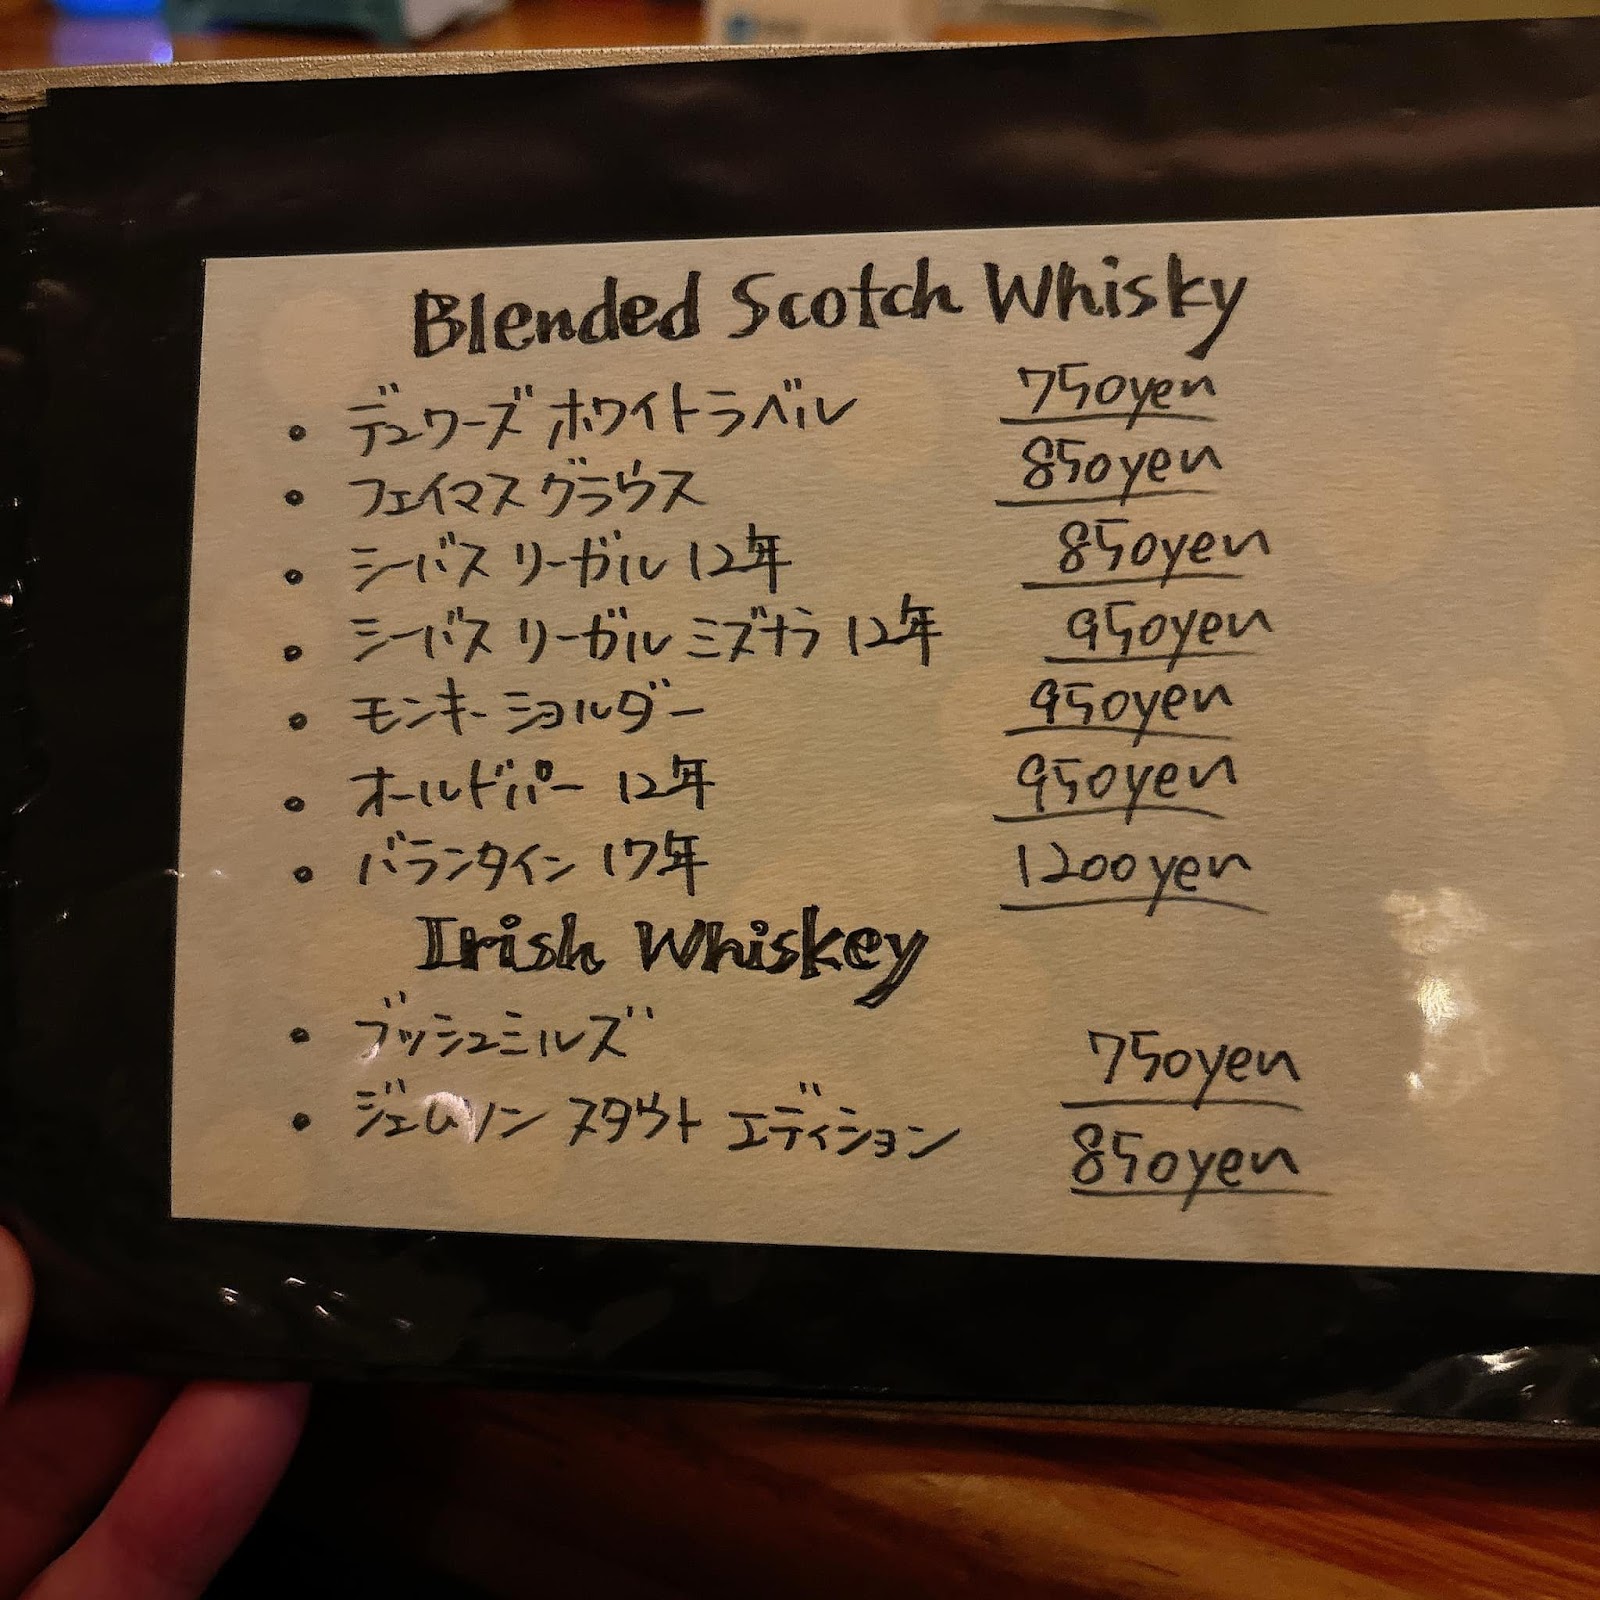 Blended Scotch Whisky
• デュワーズ ホワイトラベル 750yen
• フェイマス グラウス 850yen
• シーバス リーガル 12年 850yen
• シーバス リーガル ミズナラ 12年 950yen
• モンキー ショルダー 950yen
• オールドパー 12年 950yen
• バランタイン 17年 1200yen
Irish Whiskey
• ブッシュミルズ 750yen
• ジェムソン スタウト エディション 850yen